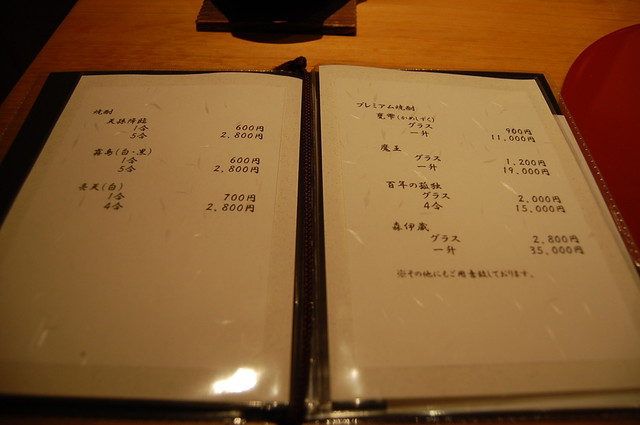 焼酎
天孫降臨
1合 600円
5合 2,800円
霧島(白・黒)
1合 600円
5合 2,800円
兵天(白)
1合 700円
4合 2,800円
プレミアム焼酎
甕雫(かめしずく)
グラス 900円
一升 11,000円
魔王
グラス 1,200円
一升 19,000円
百年の孤独
グラス 2,000円
4合 15,000円
森伊蔵
グラス 2,800円
一升 35,000円
※その他にもご用意致しております。